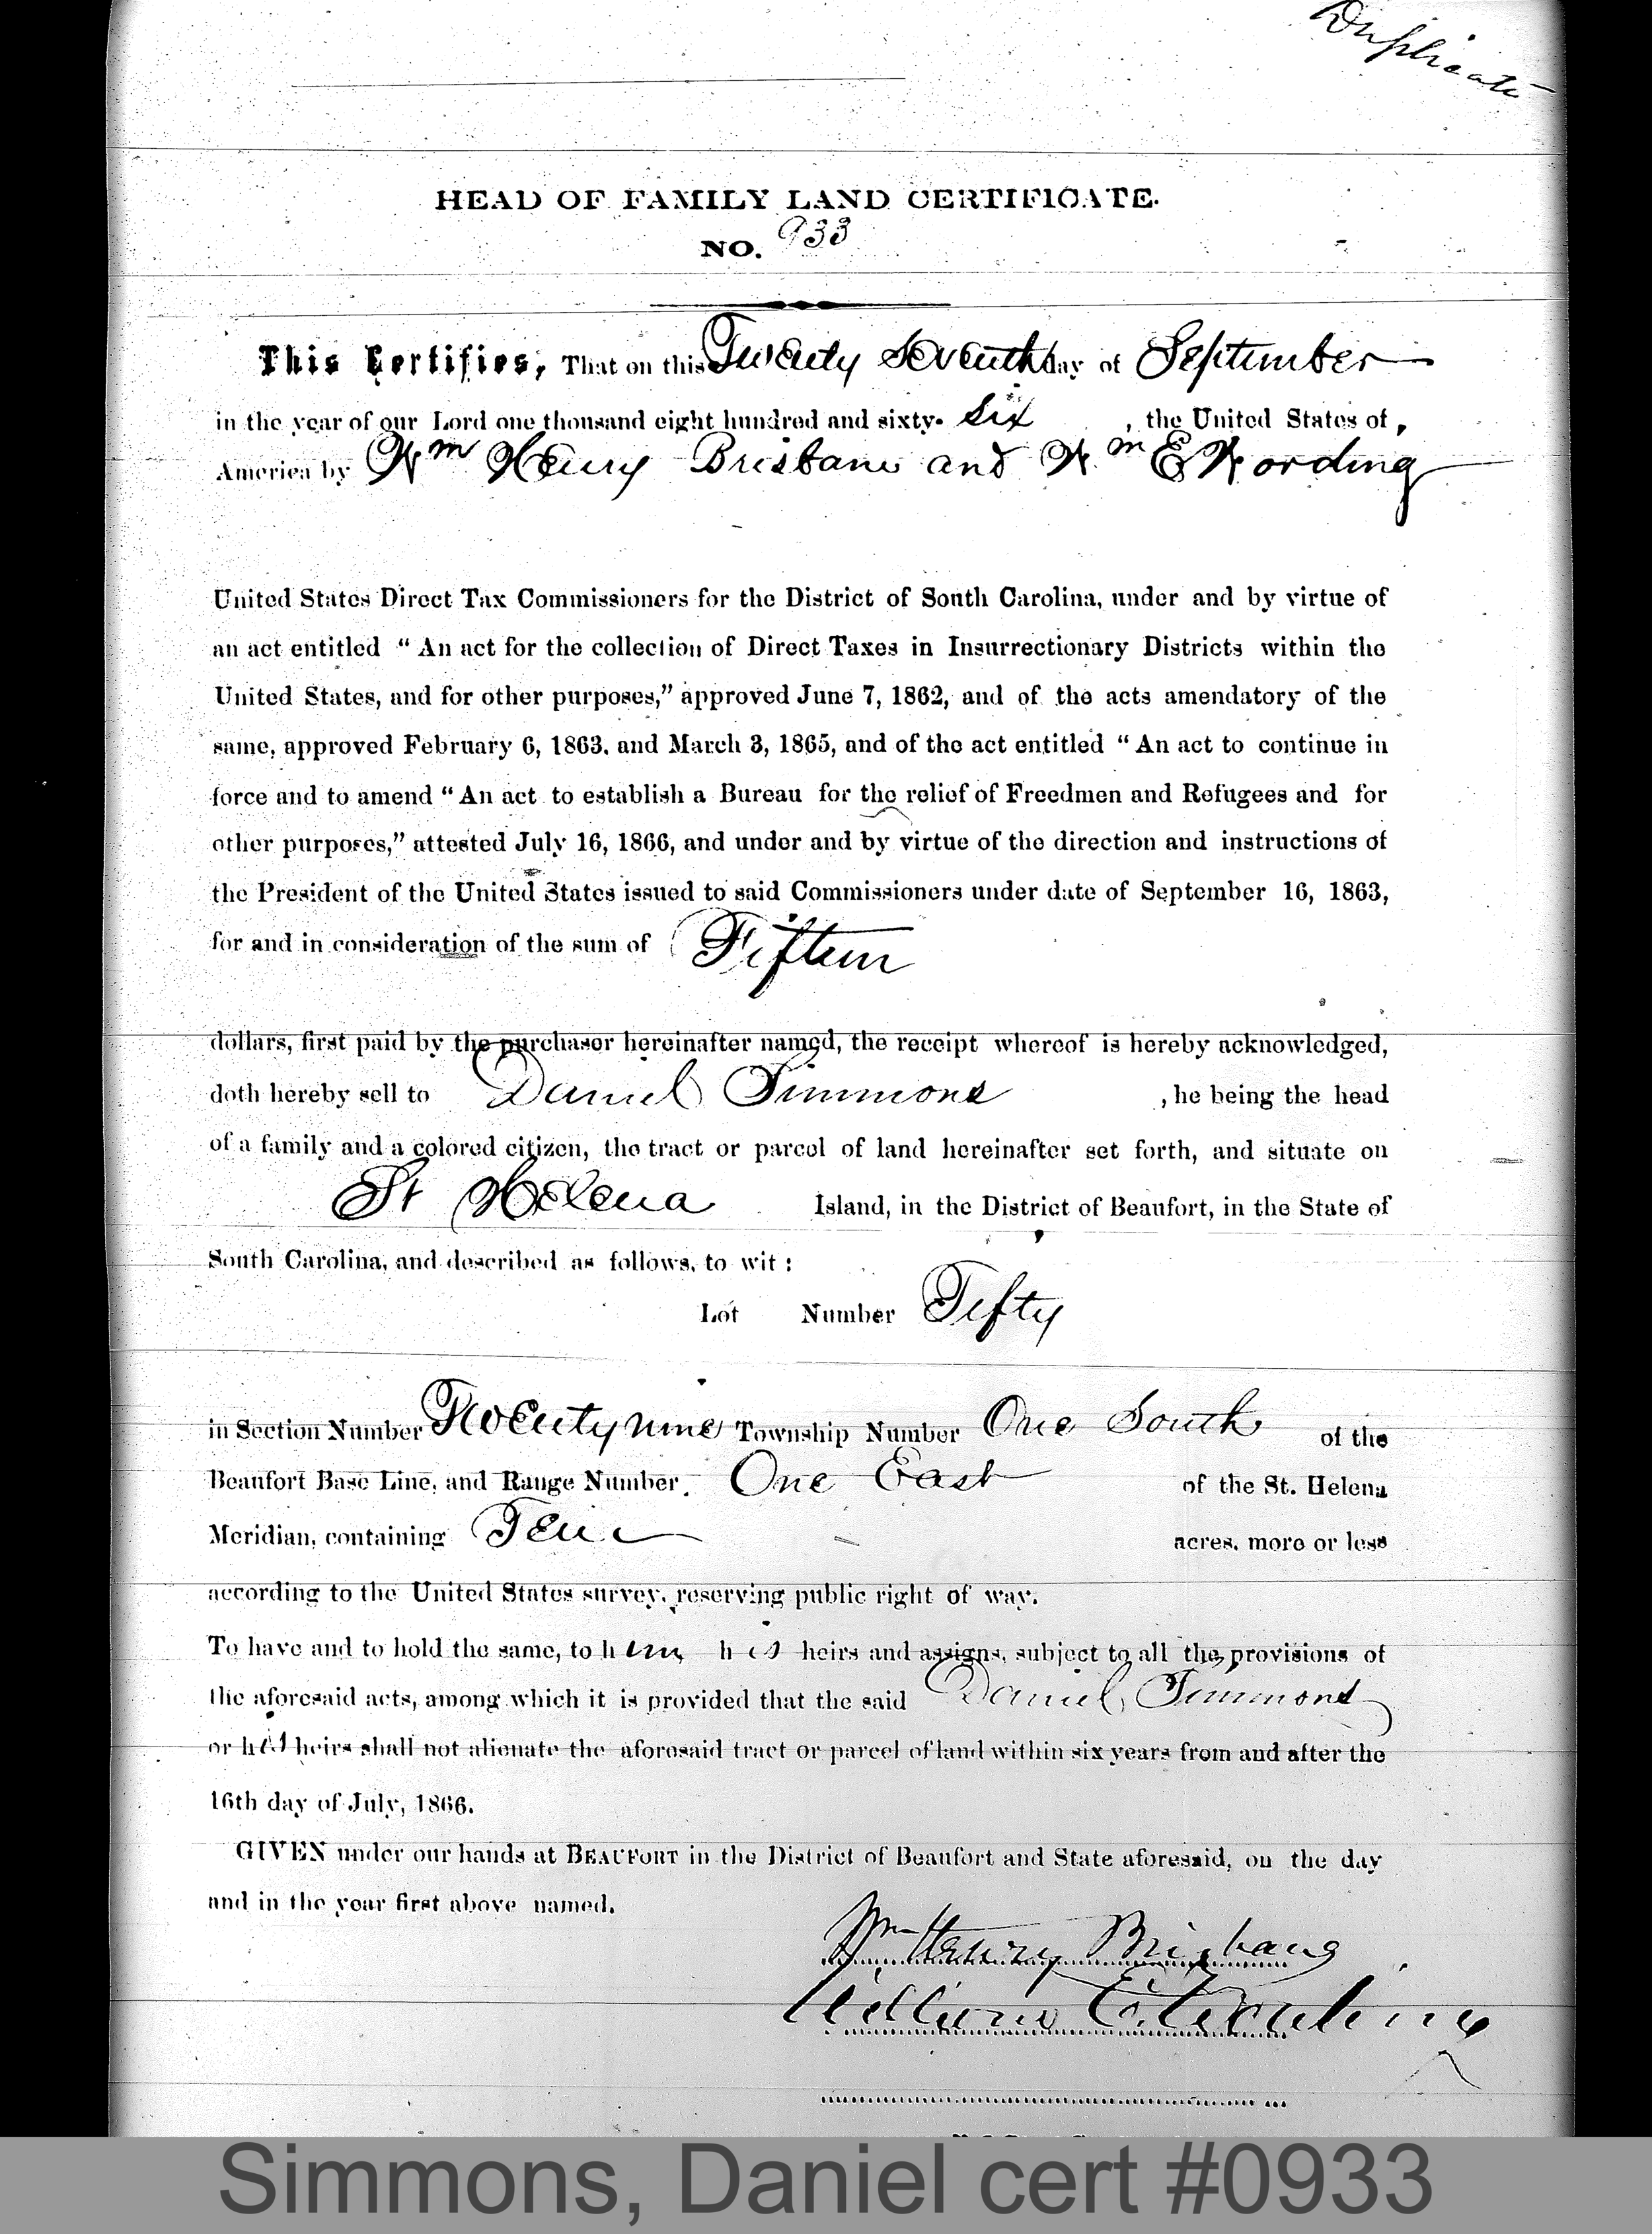 Duplicate
HEAD OF FAMILY LAND CERTIFICATE.
NO. 933
This Certifies, That on this Twenty Seventh day of September
in the year of our Lord one thousand eight hundred and sixty- Six , the United States of
America by Wm Henry Brisbane and Wm E Wording
United States Direct Tax Commissioners for the District of South Carolina, under and by virtue of
an act entitled “ An act for the collection of Direct Taxes in Insurrectionary Districts within the
United States, and for other purposes,” approved June 7, 1862, and of the acts amendatory of the
same, approved February 6, 1863, and March 3, 1865, and of the act entitled “ An act to continue in
force and to amend “ An act to establish a Bureau for the relief of Freedmen and Refugees and for
other purposes,” attested July 16, 1866, and under and by virtue of the direction and instructions of
the President of the United States issued to said Commissioners under date of September 16, 1863,
for and in consideration of the sum of Fifteen
dollars, first paid by the purchaser hereinafter named, the receipt whereof is hereby acknowledged,
doth hereby sell to Daniel Simmons , he being the head
of a family and a colored citizen, the tract or parcel of land hereinafter set forth, and situate on
St Helena Island, in the District of Beaufort, in the State of
South Carolina, and described as follows, to wit :
Lot Number Fifty
in Section Number Twenty nine Township Number One South of the
Beaufort Base Line, and Range Number One East of the St. Helena
Meridian, containing Ten acres, more or less
according to the United States survey, reserving public right of way.
To have and to hold the same, to him his heirs and assigns, subject to all the provisions of
the aforesaid acts, among which it is provided that the said Daniel Simmons
or his heirs shall not alienate the aforesaid tract or parcel of land within six years from and after the
16th day of July, 1866.
GIVEN under our hands at BEAUFORT in the District of Beaufort and State aforesaid, on the day
and in the year first above named.
Wm Henry Brisbane
William E. Wording
Simmons, Daniel cert #0933